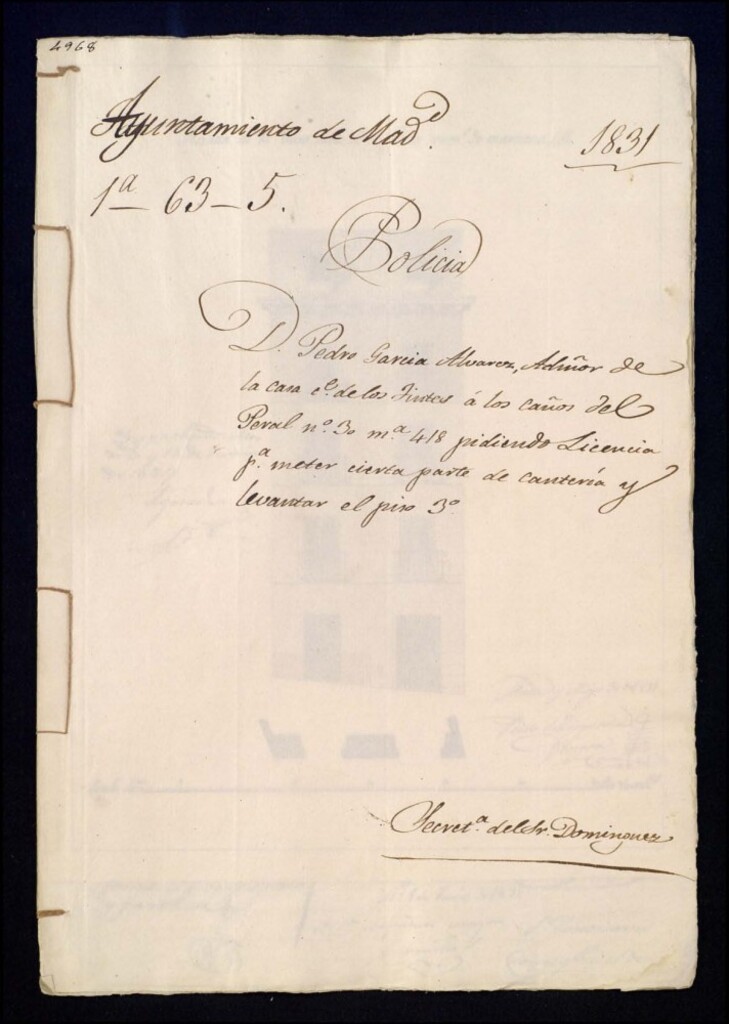 4968
Ayuntamiento de Mad.d
1831
1a 63-5.
Policia
D. Pedro Garcia Alvarez, Admor de
la casa c.e de los Tintes á los caños del
Peral nº. 30 m.a 418 pidiendo Licencia
p.a meter cierta parte de cantería y
levantar el piso 3º
Secret.a del Sr. Dominguez